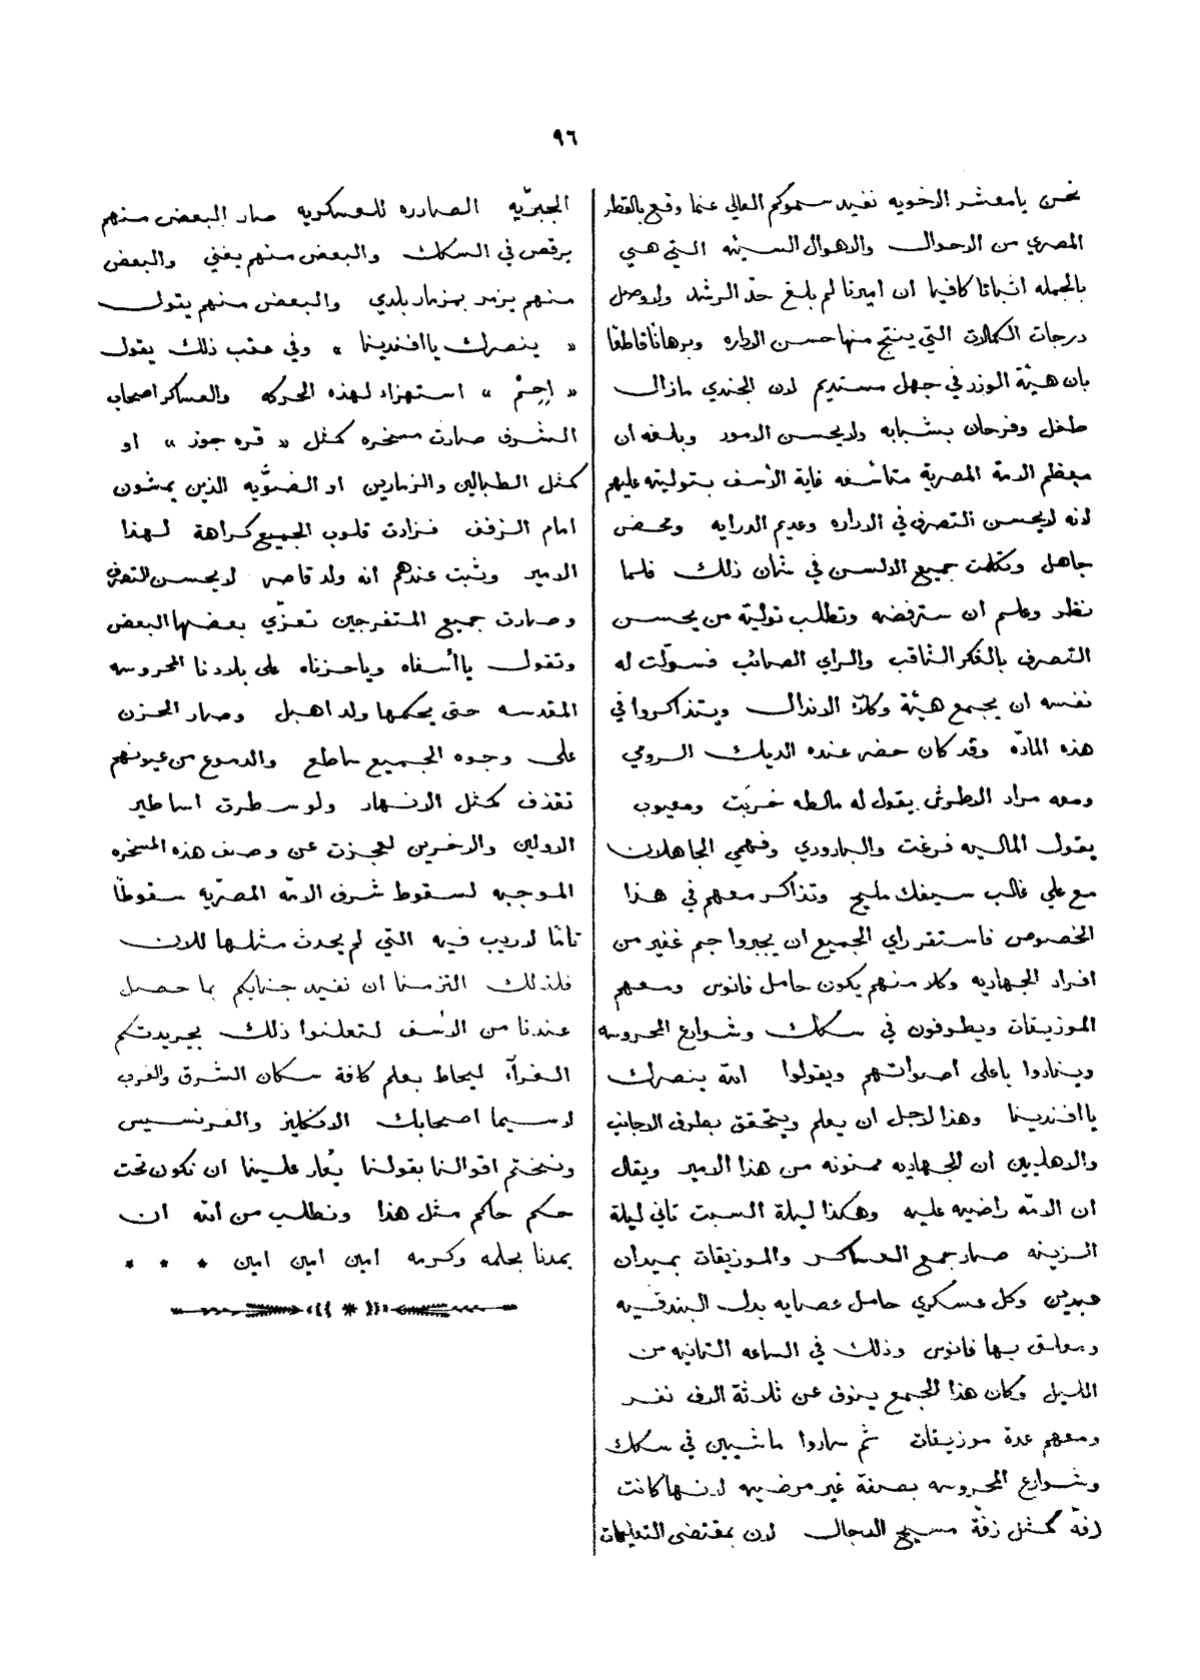 ٩٦
نحن يا معشر الاخويه نفيد سموكم العالي عنما وقع بالقطر
المصري من الاحوال والاهوال السيئه التي هي
بالجمله اثباتا كافيا ان اميرنا لم يبلغ حدّ الرشد ولا وصل
درجات الكمالات التي ينتج منها حسن الاداره وبرهاناً قاطعاً
بان هيئة الوزر في جهل مستديم لان الجندي مازال
طفل وفرحان بشبابه ولا يحسن الامور وبلغه ان
معظم الامة المصرية متأسفه غاية الأسف بتوليته عليهم
لانه لا يحسن التصرف في الاداره وعديم الدرايه ومحض
جاهل وتكلمت جميع الالسن في شان ذلك فلما
نظر وعلم ان سترفضه وتطلب تولية من يحسن
التصرف بالفكر الثاقب والراي الصائب فسوّلت له
نفسه ان يجمع هيئة وكلآ الاندال ويتذاكروا في
هذه المادّه وقد كان حضر عنده الديك الرومي
ومعه مراد الاطرش يقول له مالطه خربَت ومعيوب
يقول الماليه فرغت والبارودي وفهمي الجاهلان
مع علي غالب سيفك مليح وتذاكر معهم في هذا
الخصوص فاستقر راي الجميع ان يجبروا جم غفير من
افراد الجهاديه وكلا منهم يكون حامل فانوس ومعهم
الموزيقات ويطوفون في سكك وشوارع المحروسه
وينادوا باعلى اصواتهم ويقولوا الله ينصرك
يا افندينا وهذا لاجل ان يعلم ويتحقق بطرف الاجانب
والاهليين ان الجهاديه ممنونه من هذا الامير ويقال
ان الامّه راضيه عليه وهكذا ليلة السبت تاني ليلة
الزينه صار جمع العساكر والموزيقات بميدان
عبدين وكل عسكري حامل عصايه بدل البندقيه
ومعلق بها فانوس وذلك في الساعه الثانيه من
الليل وكان هذا الجمع ينوف عن ثلاثة الاف نفر
ومعهم عدة موزيقات ثم ساروا ماشيين في سكك
وشوارع المحروسه بصفة غير مرضيه لانها كانت
زفة كمثل زفّة مسيح الدجال لان بمقتضى التعليمات
الجبريّه الصادره للعسكريه صار البعض منهم
يرقص في السكك والبعض منهم يغني والبعض
منهم يزمر بمزمار بلدي والبعض منهم يقول
« ينصرك يا افندينا » وفي عقب ذلك يقول
« اِحِمْ » استهزاء لهذه الحركه والعساكر اصحاب
الشرف صارت مسخره كمثل « قره جوز » او
كمثل الطبالين والزمارين او الضوّيه الذين يمشون
امام الزفف فزادت قلوب الجميع كراهة لهذا
الامير وثبت عندهم انه ولد قاصر لا يحسن التصرف
وصارت جميع المتفرجين تعزّي بعضها البعض
وتقول يا أسفاه ويا حزناه على بلادنا المحروسه
المقدسه حتى يحكمها ولد اهبل وصار الحزن
على وجوه الجميع ساطع والدموع من عيونهم
تقذف كمثل الانهار ولو سطرت اساطير
الاولين والاخرين لعجزت عن وصف هذه المسخره
الموجبه لسقوط شرف الامّه المصريّه سقوطاً
تامّا لا ريب فيه التي لم يحدث مثلها للان
فلذلك التزمنا ان نفيد جنابكم بما حصل
عندنا من الاسف لتعلنوا ذلك بجريدتكم
الغرآء ليحاط بعلم كافة سكان الشرق والغرب
لا سيما اصحابك الانكليز والفرنسيس
ونختم اقوالنا بقولنا يُعار علينا ان نكون تحت
حكم حاكم مثل هذا ونطلب من الله ان
يمدنا بحلمه وكرمه امين امين امين * * *